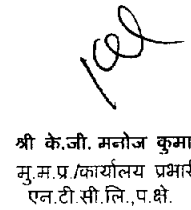 श्री के.जी. मनोज कुमा
मु.म.प्र./कार्यालय प्रभारी
एन.टी.सी.लि.,प.क्षे.